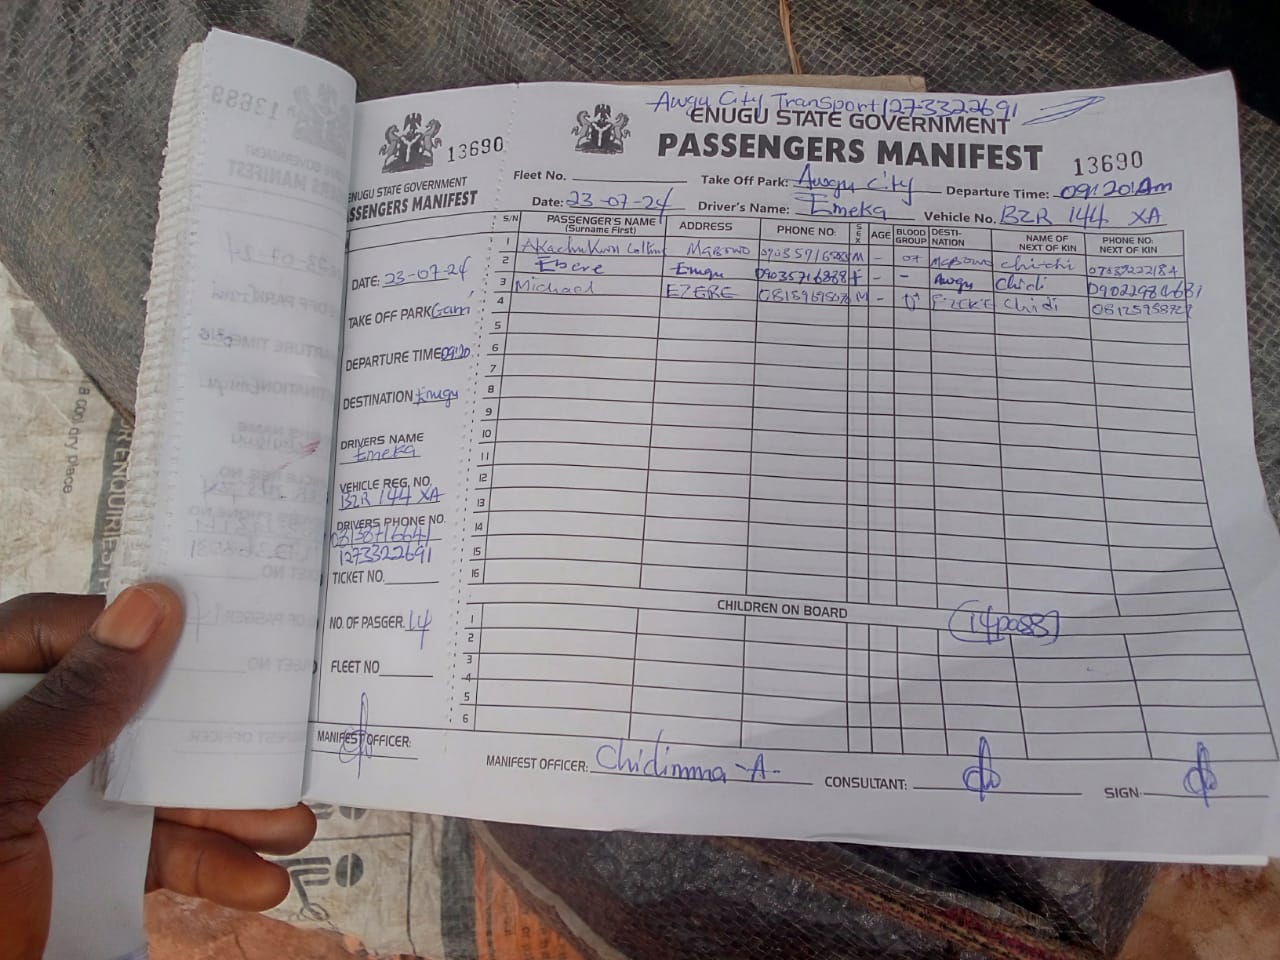 Awgu City Transport 1273322691
ENUGU STATE GOVERNMENT
PASSENGERS MANIFEST
13690
Fleet No. Take Off Park: Awgu City Departure Time: 09:20 Am
Date: 23-07-24 Driver's Name: Emeka Vehicle No. BZR 144 XA
S/N PASSENGER'S NAME (Surname First) ADDRESS PHONE NO: SEX AGE BLOOD GROUP DESTI-NATION NAME OF NEXT OF KIN PHONE NO. NEXT OF KIN
1 Mgbowo M - O+ Mgbowo chi-chi
2 Ebere Enugu - - Awgu chidi
3 Michael EZERE M - EZERE Chidi
4
5
6
7
8
9
10
11
12
13
14
15
16
CHILDREN ON BOARD
14pass
1
2
3
4
5
6
MANIFEST OFFICER: Chidimma -A- CONSULTANT: SIGN:
13690
ENUGU STATE GOVERNMENT
PASSENGERS MANIFEST
DATE: 23-07-24
TAKE OFF PARK
DEPARTURE TIME 09:20
DESTINATION Enugu
DRIVERS NAME
Emeka
VEHICLE REG. NO.
BZR 144 XA
DRIVERS PHONE NO.
1273322691
TICKET NO.
NO. OF PASGER. 14
FLEET NO
MANIFEST OFFICER:
a cool dry place